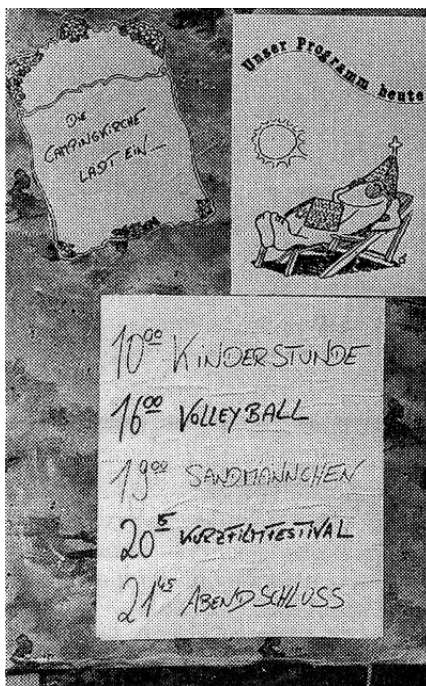 Die
CAMPINGKIRCHE
LÄDT EIN...
Unser Programm heute
10⁰⁰ KINDERSTUNDE
16⁰⁰ VOLLEYBALL
19⁰⁰ SANDMÄNNCHEN
20⁵ KURZFILMFESTIVAL
21⁴⁵ ABENDSCHLUSS